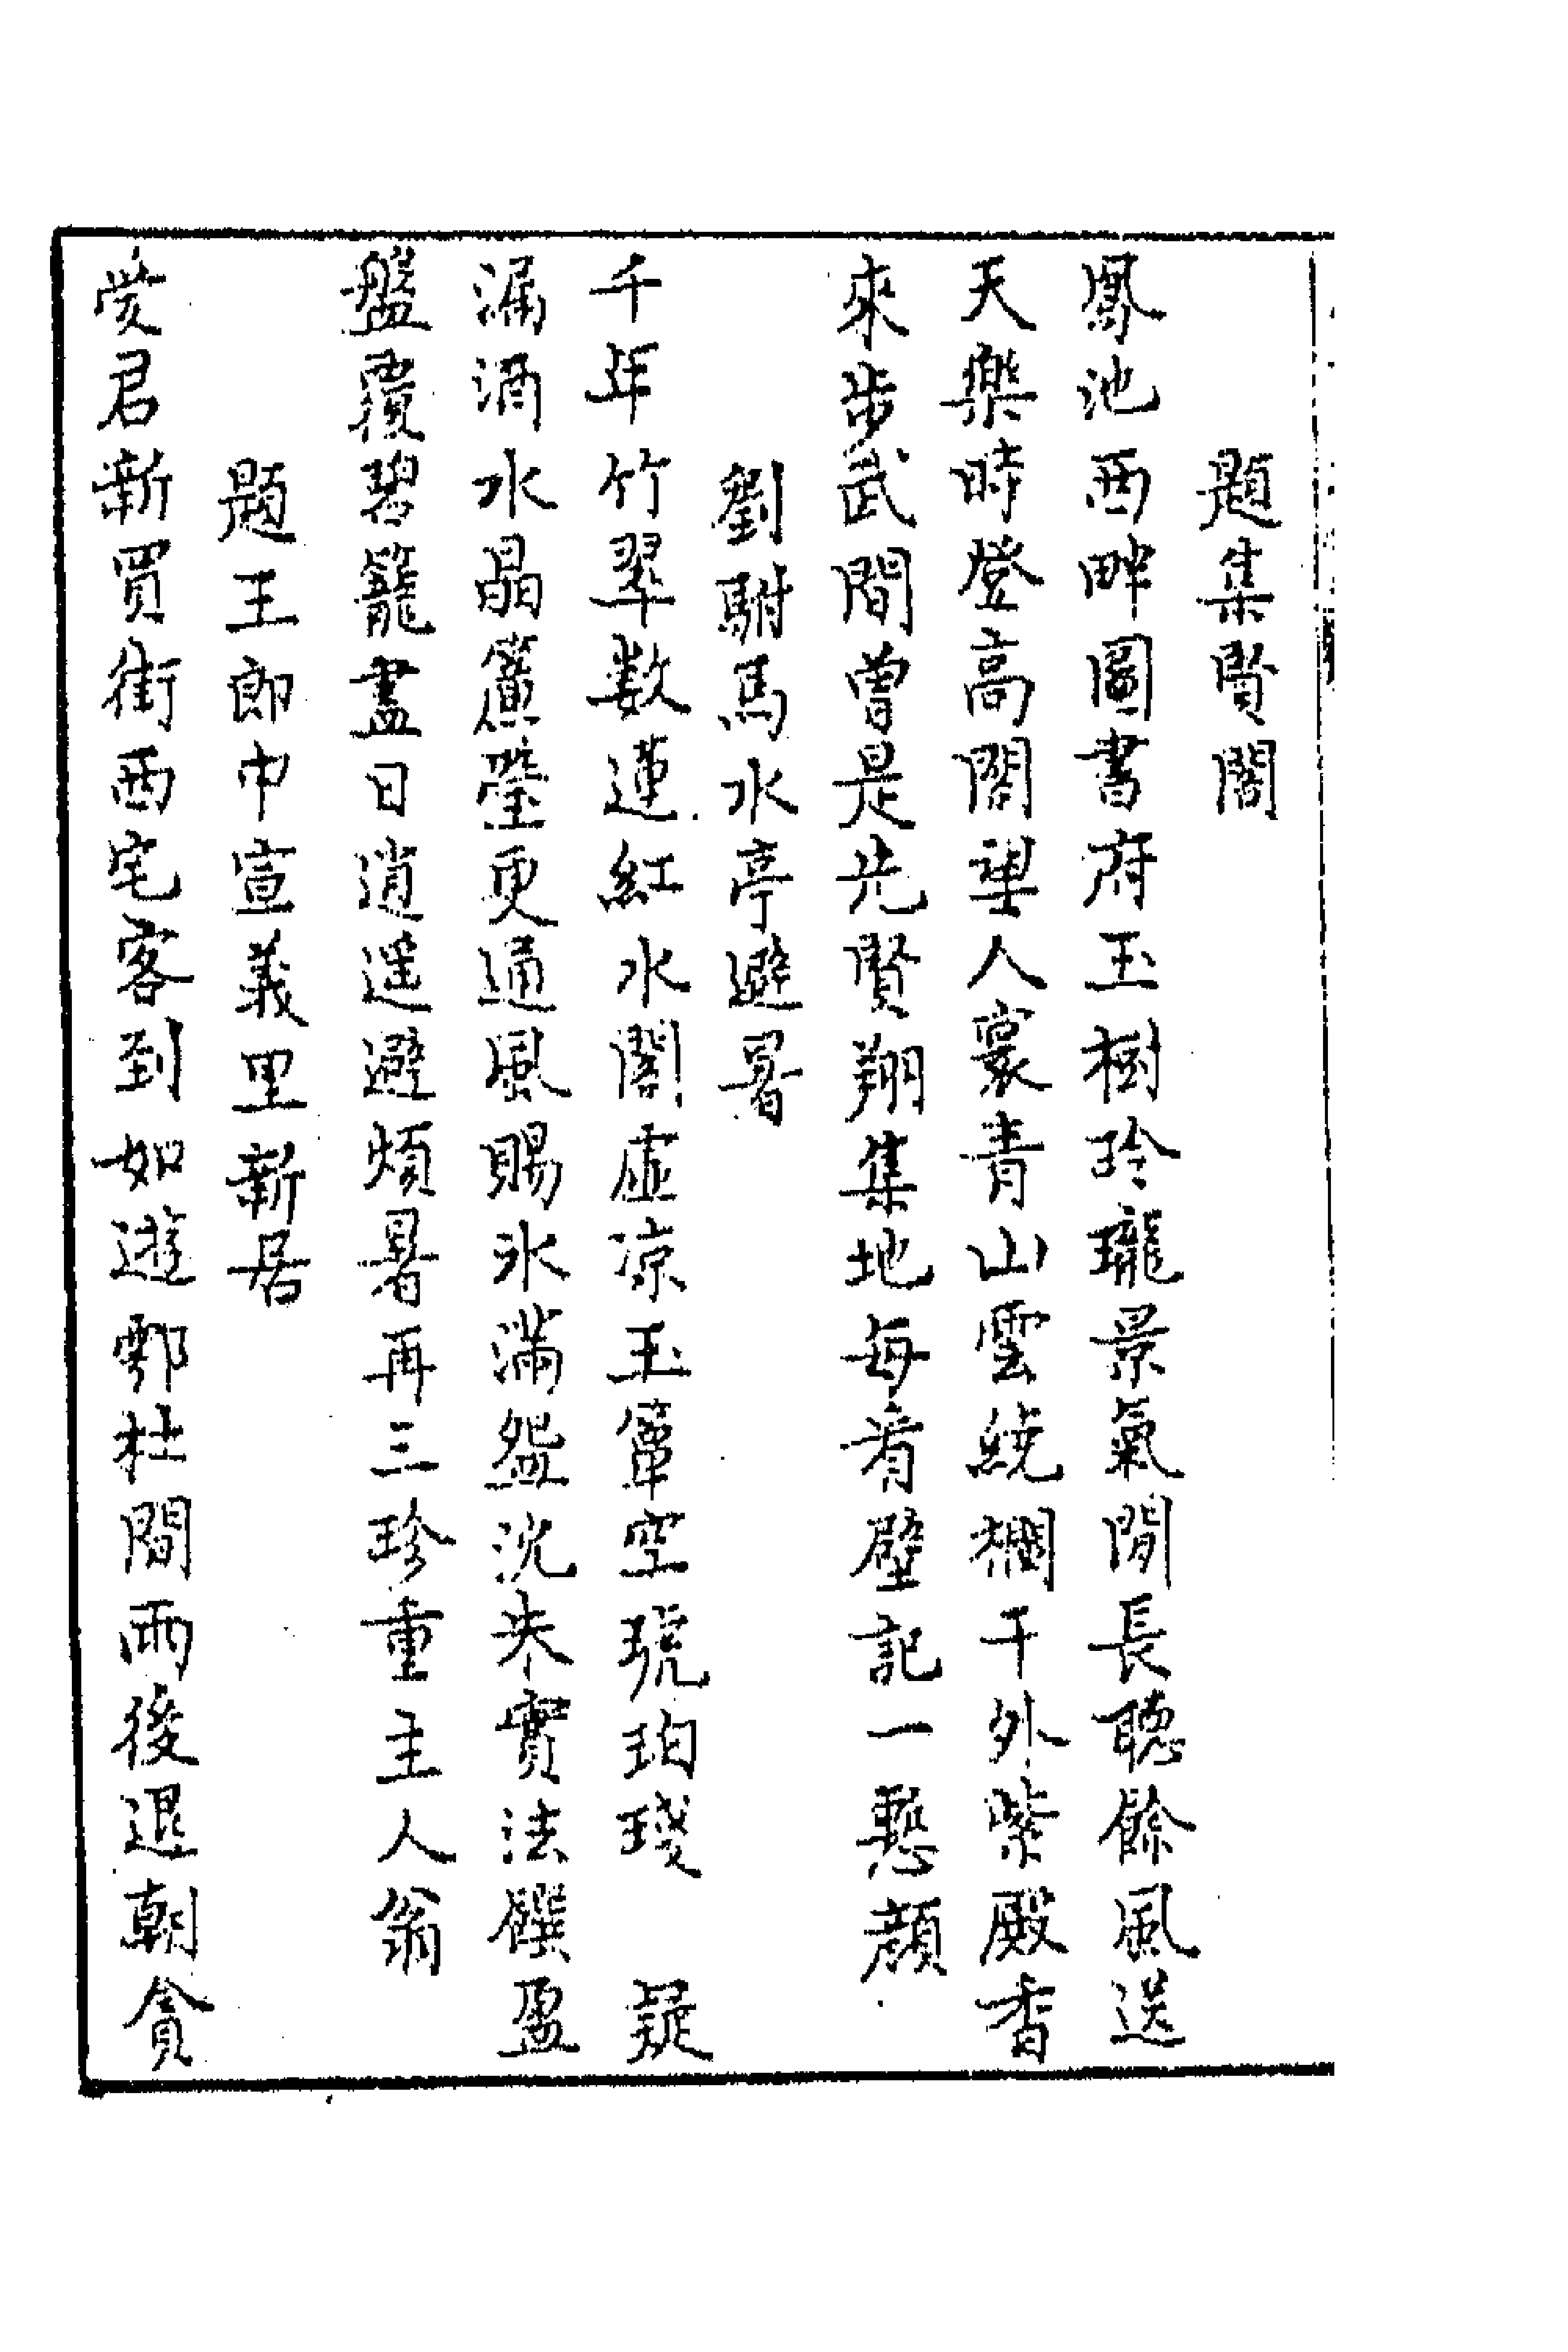 題集賢閣
鳳池西畔圖書府玉樹玲瓏景氣閒長聴餘風送
天樂時登高閣望人寰青山雲繞欄干外紫殿香
來步武間曾是先賢翔集地每看壁記一慙顔
劉駙馬水亭避暑
千年竹翠數蓮紅水閣虛涼玉簟空琥珀琖 疑
漏酒水晶簾瑩更通風賜氷滿盌沈朱實法饌盈
盤覆碧籠盡日逍遥避煩暑再三珍重主人翁
題王郎中宣義里新居
愛君新買街西宅客到如遊鄠杜間雨後退朝貪